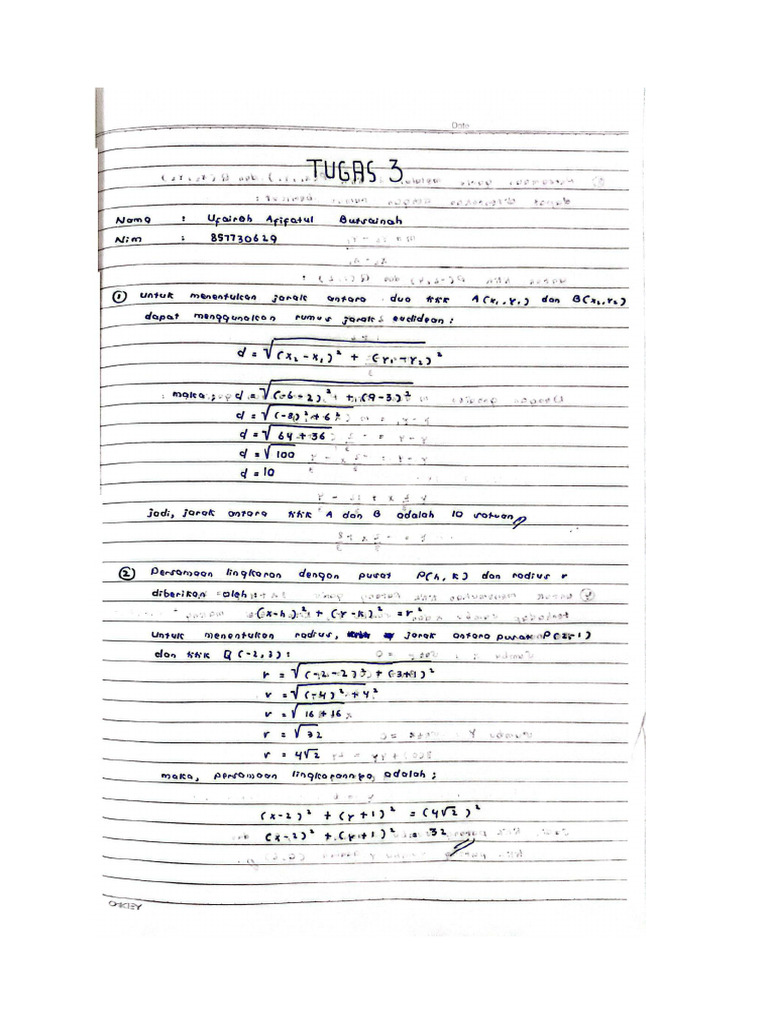 Date
TUGAS 3
Nama : Ufairoh Afifatul Butsainah
Nim : 857730629
① Untuk menentukan jarak antara dua titik A(x₁, y₁) dan B(x₂, y₂)
dapat menggunakan rumus jarak euclidean :
d = √(x₂ - x₁)² + (y₁ - y₂)²
maka ; d = √(-6-2)² + (9-3)²
d = √(-8)² + 6²
d = √64 + 36
d = √100
d = 10
jadi, jarak antara titik A dan B adalah 10 satuan
② Persamaan lingkaran dengan pusat P(h, k) dan radius r
diberikan oleh :
(x-h)² + (y-k)² = r²
Untuk menentukan radius, jarak antara pusat P(2,-1)
dan titik Q (-2, 3) :
r = √(-2-2)² + (3+1)²
r = √(-4)² + 4²
r = √16 + 16
r = √32
r = 4√2
maka, persamaan lingkarannya adalah ;
(x-2)² + (y+1)² = (4√2)²
(x-2)² + (y+1)² = 32